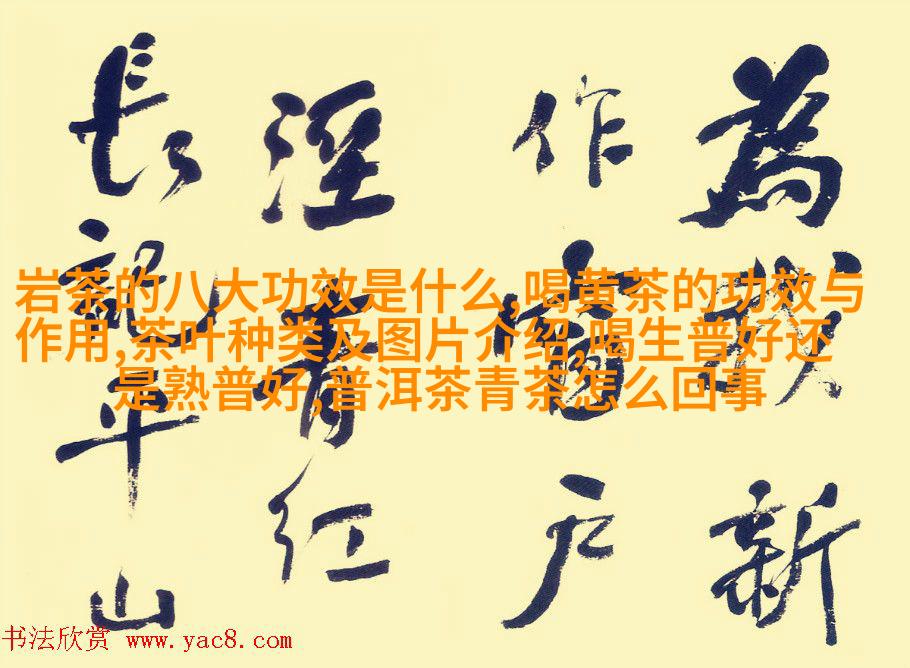 為我新
作窗户
溼青红
長記平山
岩茶的八大功效是什么,喝黄茶的功效与
作用,茶叶种类及图片介绍,喝生普好还
是熟普好,普洱茶青茶怎么回事
书法欣赏 www.yac8.com